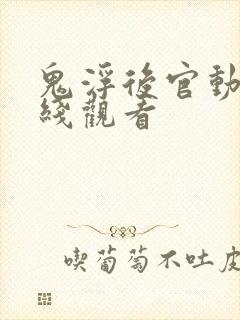 鬼浮後官動
綫觀看
喫葡萄不吐皮